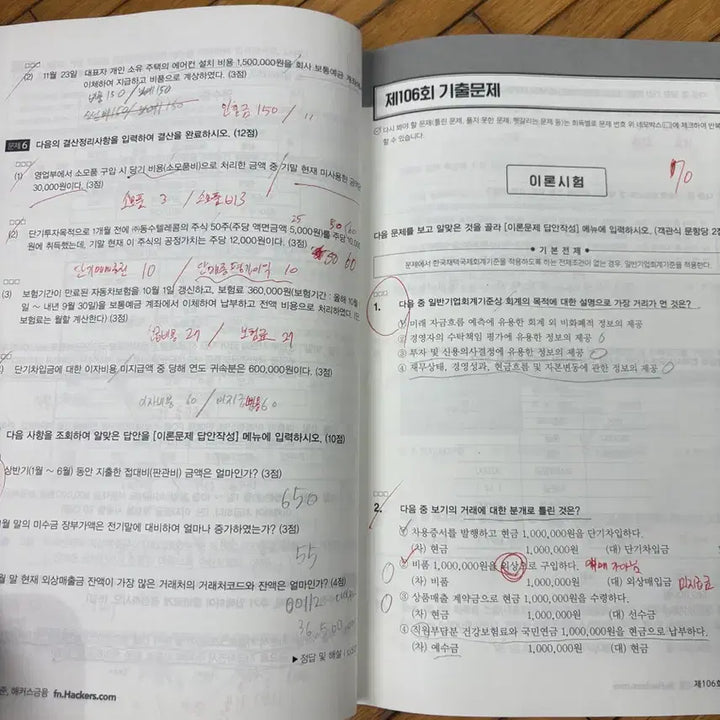 (2) 11월 23일 대표자 개인 소유 주택의 에어컨 설치 비용 1,500,000원을 회사 보통예금 계좌에서
이체하여 지급하고 비품으로 계상하였다. (3점)
인출금 150 / "
문제 6 다음의 결산정리사항을 입력하여 결산을 완료하시오. (12점)
(1) 영업부에서 소모품 구입 시 당기 비용(소모품비)으로 처리한 금액 중 기말 현재 미사용한 금액은
30,000원이다. (3점)
소모품 3 / 소모품비 3
25 50 60
(2) 단기투자목적으로 1개월 전에 ㈜동수텔레콤의 주식 50주(주당 액면금액 5,000원)를 주당 10,000
원에 취득했는데, 기말 현재 이 주식의 공정가치는 주당 12,000원이다. (3점)
50 60
단기매매증권 10 / 단기매매증권평가이익 10
(3) 보험기간이 만료된 자동차보험을 10월 1일 갱신하고, 보험료 360,000원(보험기간 : 올해 10월 1
일 ~ 내년 9월 30일)을 보통예금 계좌에서 이체하여 납부하고 전액 비용으로 처리하였다. (단,
보험료는 월할 계산한다) (3점)
선급비용 27 / 보험료 27
단기차입금에 대한 이자비용 미지급액 중 당해 연도 귀속분은 600,000원이다. (3점)
이자비용 60 / 미지급비용 60
다음 사항을 조회하여 알맞은 답안을 [이론문제 답안작성] 메뉴에 입력하시오. (10점)
상반기(1월 ~ 6월) 동안 지출한 접대비(판관비) 금액은 얼마인가? (3점)
650
월 말의 미수금 장부가액은 전기말에 대비하여 얼마나 증가하였는가? (3점)
55
월 말 현재 외상매출금 잔액이 가장 많은 거래처의 거래처코드와 잔액은 얼마인가? (4점)
00112
▶ 정답 및 해설
해커스금융 fn.Hackers.com
제106회 기출문제
다시 봐야 할 문제(틀린 문제, 풀지 못한 문제, 헷갈리는 문제 등)는 회독별로 문제 번호 위 네모박스(□)에 체크하여 반복
할 수 있습니다.
이론시험
70
다음 문제를 보고 알맞은 것을 골라 [이론문제 답안작성] 메뉴에 입력하시오. (객관식 문항당 2점)
• 기 본 전 제 •
문제에서 한국채택국제회계기준을 적용하도록 하는 전제조건이 없는 경우, 일반기업회계기준을 적용한다.
1. 다음 중 일반기업회계기준상 회계의 목적에 대한 설명으로 가장 거리가 먼 것은?
① 미래 자금흐름 예측에 유용한 회계 외 비화폐적 정보의 제공
② 경영자의 수탁책임 평가에 유용한 정보의 제공
③ 투자 및 신용의사결정에 유용한 정보의 제공
④ 재무상태, 경영성과, 현금흐름 및 자본변동에 관한 정보의 제공
2. 다음 중 보기의 거래에 대한 분개로 틀린 것은?
① 차용증서를 발행하고 현금 1,000,000원을 단기차입하다.
(차) 현금 1,000,000원 (대) 단기차입금
② 비품 1,000,000원을 외상으로 구입하다.
(차) 비품 1,000,000원 (대) 외상매입금 미지급금
③ 상품매출 계약금으로 현금 1,000,000원을 수령하다.
(차) 현금 1,000,000원 (대) 선수금
④ 직원부담분 건강보험료와 국민연금 1,000,000원을 현금으로 납부하다.
(차) 예수금 1,000,000원 (대) 현금
제106회